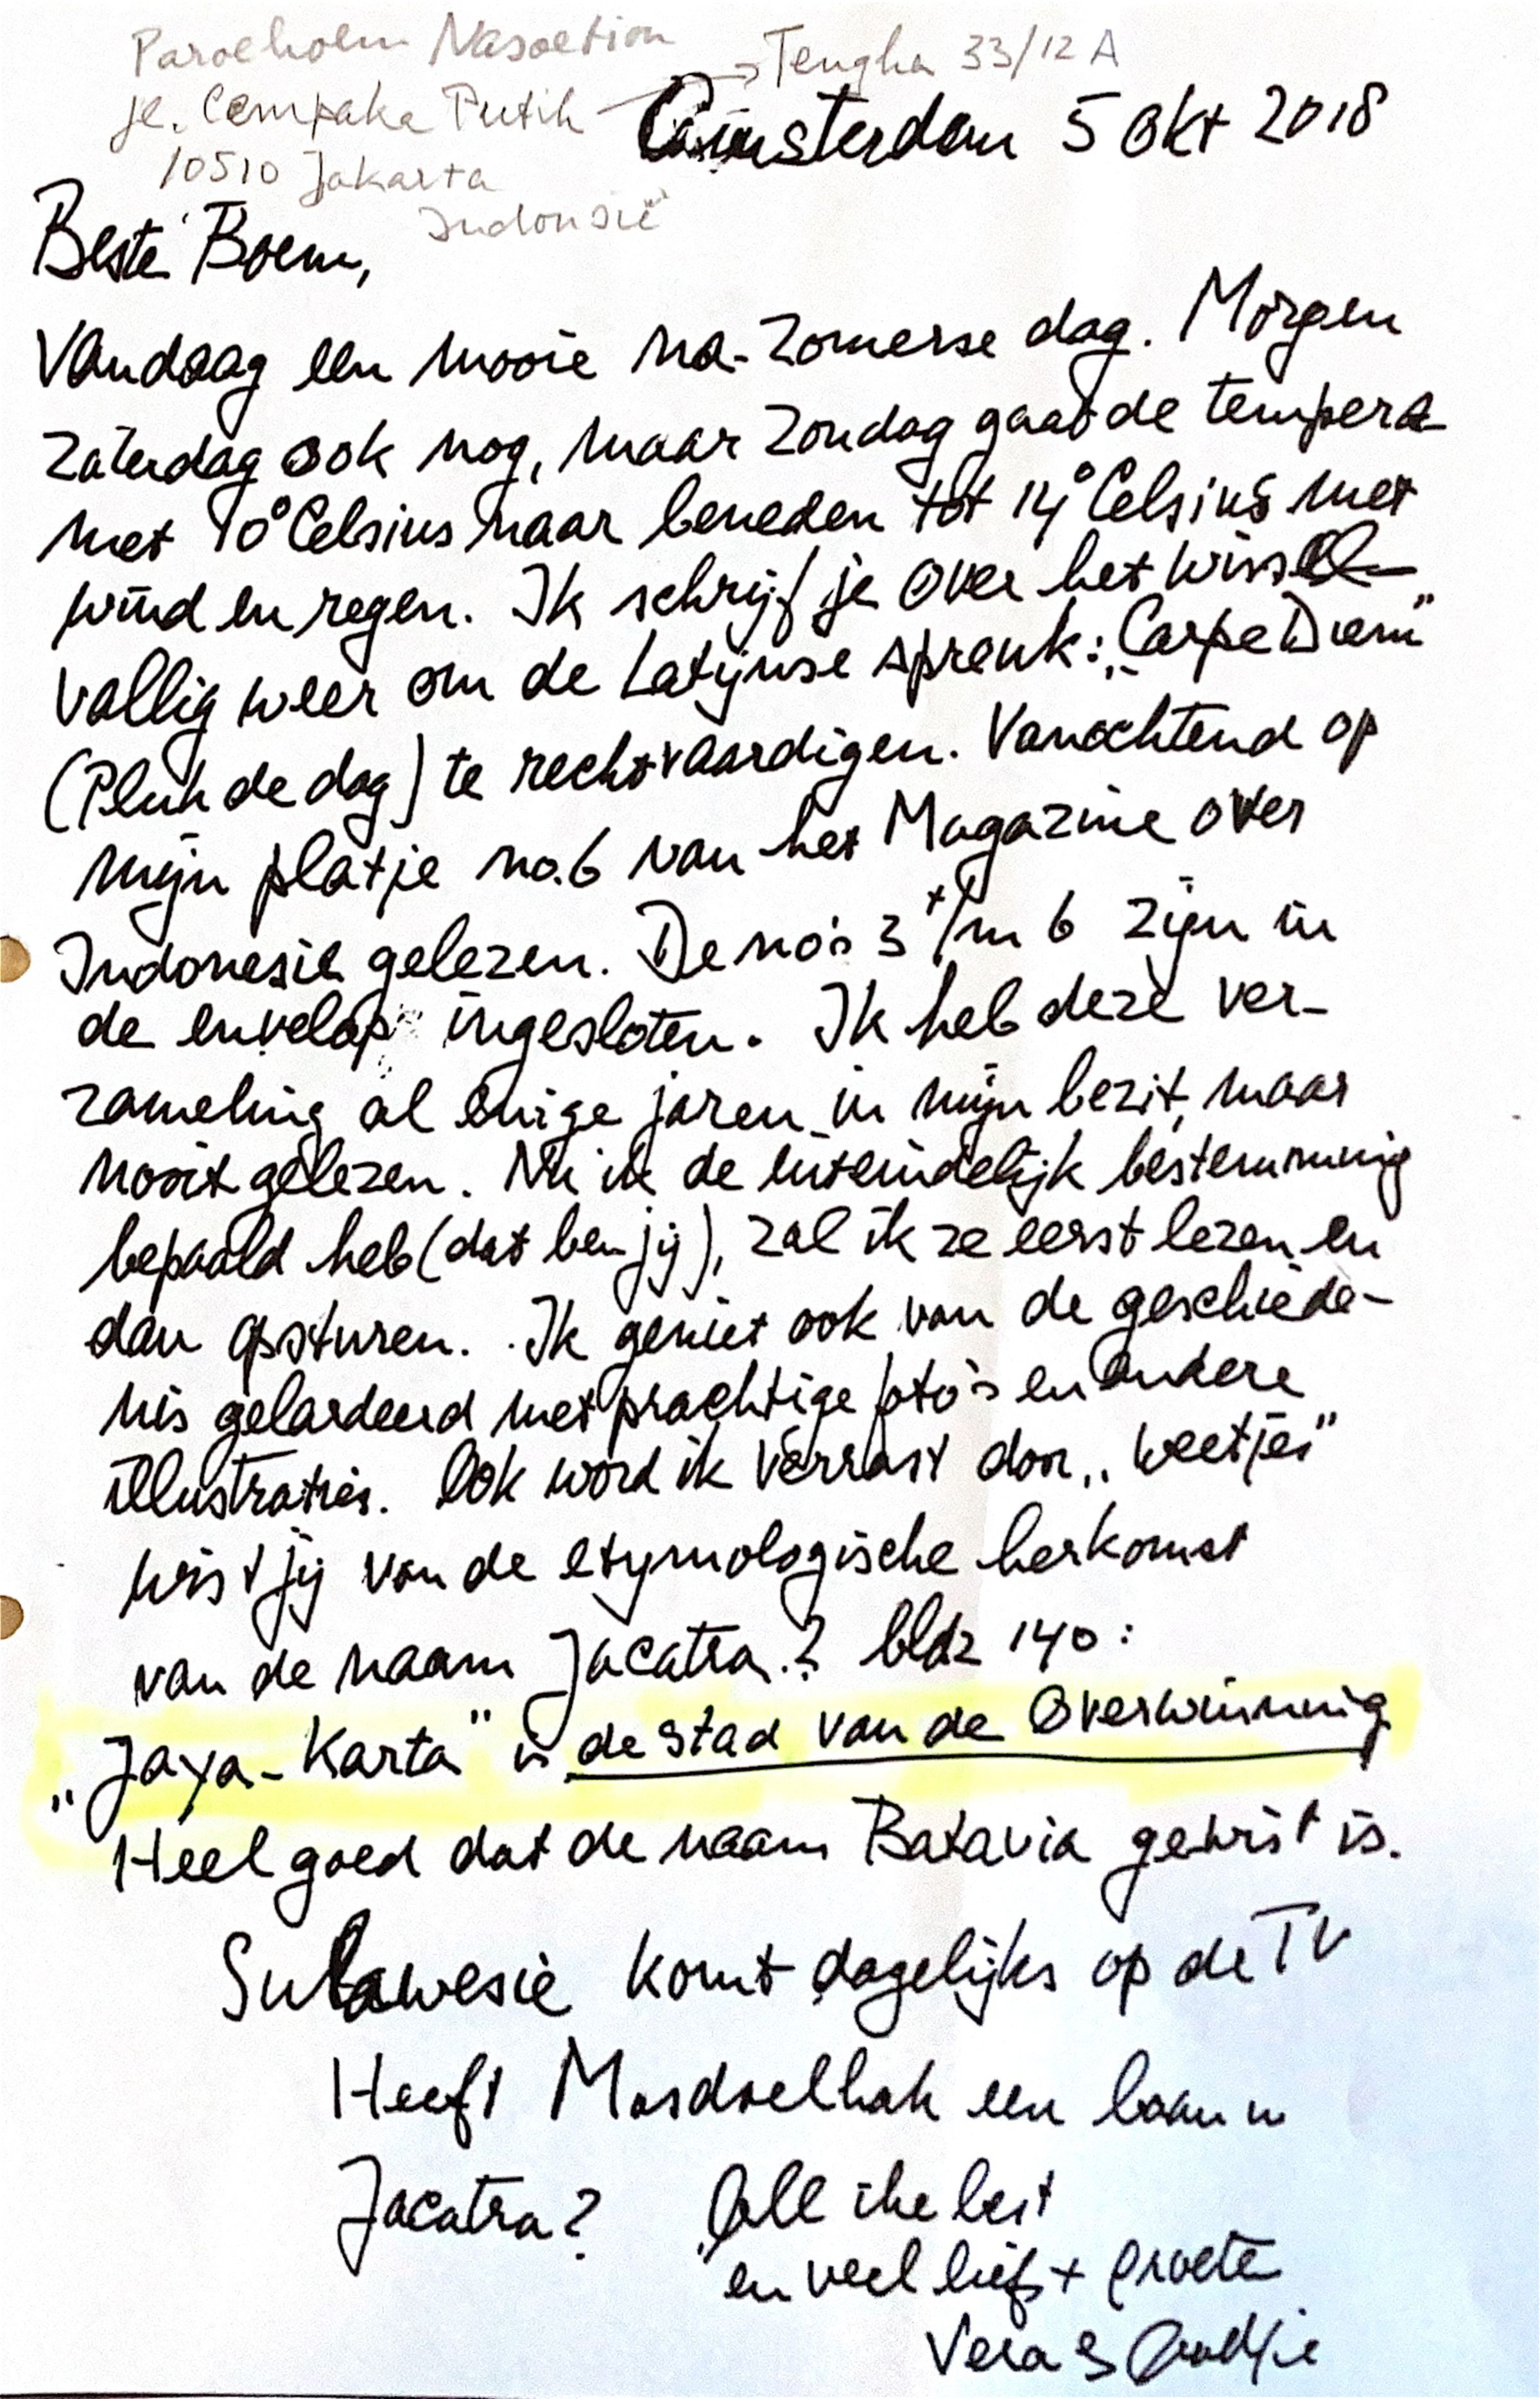 Paroehoem Nasoetion
→ Tengha 33/12 A
jl. Cempaka Putih
Amsterdam 5 Okt 2018
10510 Jakarta
Indonsië
Beste Boem,
Vandaag een mooie na-zomerse dag. Morgen
zaterdag ook nog, maar zondag gaat de tempera
met 10° Celsius naar beneden tot 14° Celsius met
wind en regen. Ik schrijf je over het wissel-
vallig weer om de Latijnse spreuk: „Carpe Diem"
(Pluk de dag) te rechtvaardigen. Vanochtend op
mijn platje no. 6 van het Magazine over
Indonesie gelezen. De no's 3 t/m 6 zijn in
de envelop ingesloten. Ik heb deze ver-
zameling al enige jaren in mijn bezit, maar
nooit gelezen. Nu ik de uiteindelijk bestemming
bepaald heb (dat ben jij), zal ik ze eerst lezen en
dan opsturen. Ik geniet ook van de geschiede-
nis gelardeerd met prachtige foto's en andere
illustraties. Ook word ik verrast door „weetjes"
wist jij van de etymologische herkomst
van de naam Jacatra.? bldz 140:
„Jaya-Karta" is de stad van de Overwinning
Heel goed dat de naam Batavia gewist is.
Sulawesie komt dagelijks op de TV
Heeft Masdoelhak een baan in
Jacatra? All the best
en veel liefs + groete
Vera &